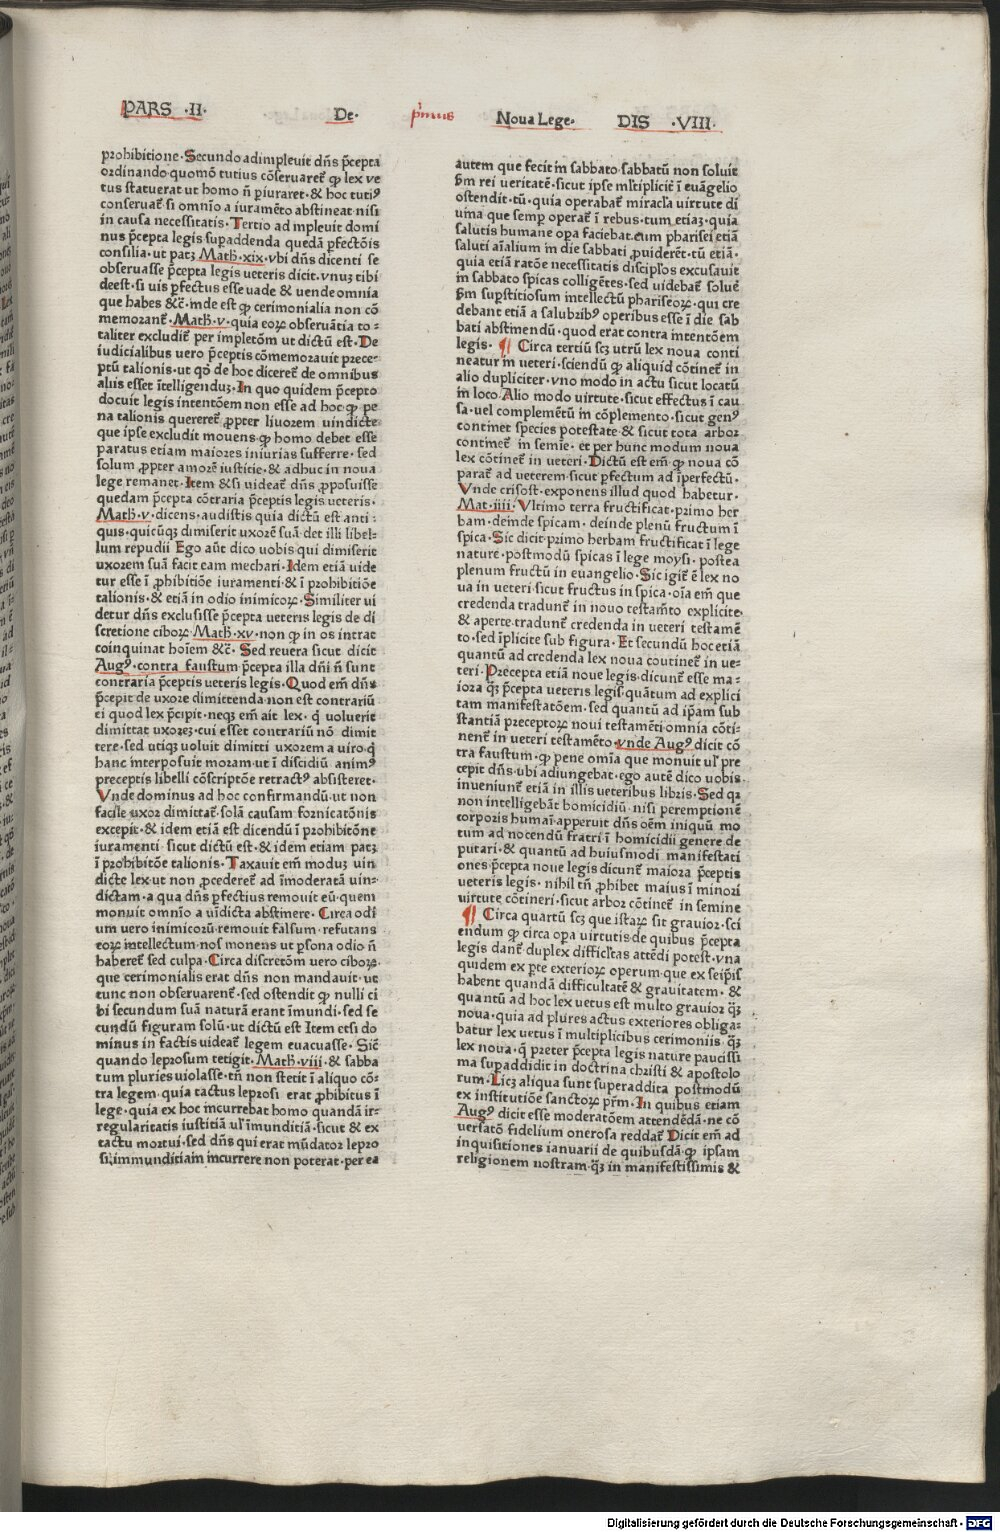 PARS ·II· De· p̄mus Noua Lege· DIS ·VIII·
prohibitione· Secundo adimpleuit dn̄s p̄cepta
ordinando quomō tutius cōseruaret᷑ ꝙ lex ve
tus statuerat ut homo n̄ p̱iuraret· & hoc tutiꝰ
conseruat᷑ si omnīo a iuramēto abstineat nisi
in causa necessitatis· Tertio ad impleuit domi
nus p̄cepta legis supaddenda quedā ꝑfectōis
consilia· ut patꝫ Math·xix· vbi dn̄s dicenti se
obseruasse p̄cepta legis ueteris dicit· vnuꝫ tibi
deest· si uis ꝑfectus esse uade & uende omnia
que habes &c̄· inde est ꝙ cerimonialia non cō
memorant᷑· Math·v· quia eoꝝ obseruātia to=
taliter excludit᷑ per impletōm ut dictū est· De
iudicialibus uero p̄ceptis cōmemorauit prece=
ptū talionis· ut qō de hoc diceret᷑ de omnibus
aliis esset ītelligenduꝫ· In quo quidem p̄cepto
docuit legis intentōem non esse ad hoc ꝙ pe
na talionis quereret᷑ ꝓpter liuorem uindicte·
que ipse excludit mouens ꝙ homo debet esse
paratus etiam maiores iniurias sufferre· sed
solum ꝓpter amorē iusticie· & adhuc in noua
lege remanet· Item & si uideat᷑ dn̄s ꝓposuisse
quedam p̄cepta cōtraria p̄ceptis legis ueteris·
Math·v· dicens· audistis quia dictū est anti=
quis· quicūqꝫ dimiserit uxorē suā· det illi libel=
lum repudii Ego aūt dico uobis qui dimiserit
uxorem suā facit eam mechari· Idem etiā uide
tur esse ī ꝓhibitiōe iuramenti· & ī prohibitiōe
talionis· & etiā in odio inimicoꝝ· Similiter ui
detur dn̄s exclusisse p̄cepta ueteris legis de di
scretione ciboꝝ Math·xv· non ꝙ in os intrat
coinquinat hoīem &c̄· Sed reuera sicut dicit
Augꝰ· contra faustum p̄cepta illa dn̄i n̄ sunt
contraria p̄ceptis ueteris legis· Quod em̄ dn̄s
p̄cepit de uxore dimittenda non est contrariū
ei quod lex p̄cipit· neqꝫ em̄ ait lex· q̄ uoluerit
dimittat uxoreꝫ· cui esset contrariū nō dimit
tere· sed utiqꝫ uoluit dimitti uxorem a uiro· q̄
hanc interposuit moram· ut ī discidiū animꝰ
preceptis libelli cōscriptōe retractꝰ absisteret·
Vnde dominus ad hoc confirmandū· ut non
facile uxor dimittat᷑ solā causam fornicatōnis
excepit· & idem etiā est dicendū ī prohibitōne
iuramenti sicut dictū est· & idem etiam patꝫ
ī prohibitōe talionis· Taxauit em̄ moduꝫ uin
dicte lex· ut non ꝓcederet᷑ ad īmoderatā uin=
dictam· a qua dn̄s ꝑfectius remouit eū· quem
monuit omnīo a uīdicta abstinere· Circa odī
um uero inimicorū· remouit falsum· refutans
eoꝝ intellectum· nos monens ut ꝑsona odio n̄
haberet᷑ sed culpa· Circa discretōm uero ciboꝝ·
que cerimonialis erat dn̄s non mandauit· ut
tunc non obseruarent᷑· sed ostendit ꝙ nulli ci
bi secundum suā naturā erant īmundi· sed se
cundū figuram solū· ut dictū est Item etsi do
minus in factis uideat᷑ legem euacuasse· Sic̄
quando leprosum tetigit· Math·viii· & sabba
tum pluries uiolasse· tn̄ non stetit ī aliquo cō=
tra legem· quia tactus leprosi erat ꝓhibitus ī
lege· quia ex hoc incurrebat homo quandā ir=
regularitatis iustitiā ul̄ īmunditiā· sicut & ex
tactu mortui· sed dn̄s qui erat mūdator lepro
si· immunditiam incurrere non poterat· per ea
autem que fecit in sabbato· sabbatū non soluit
ẜm rei ueritatē· sicut ipse mltīpliciē ī euāgelio
ostendit· tū· quia operabat᷑ miracl̄a uirtute di
uina que semp̱ operat᷑ ī rebus· tum etiaꝫ· quia
salutis humane opa faciebat· cum pharisei etiā
saluti aīalium in die sabbati ꝓuiderēt· tū etiā·
quia etiā ratōe necessitatis discipl̄os excusauit
in sabbato spicas colligētes· sed uidebat᷑ soluē
ẜm supstitiosum intellectū phariseoꝝ· qui cre
debant etiā a salubribꝰ operibus esse ī die sab
bati abstinendū· quod erat contra intentōem
legis· ¶ Circa tertiū scꝫ utrū lex noua conti
neatur in ueteri· sciendū ꝙ aliquid cōtinet᷑ in
alio dupliciter· vno modo in actu sicut locatū
in loco· Alio modo uirtute· sicut effectus ī cau
sa· uel complemētū in cōplemento· sicut genꝰ
continet species potestate· & sicut tota arbor
continet᷑ in semīe· et per hunc modum noua
lex cōtinet᷑ in ueteri· Dictū est em̄ ꝙ noua cō
parat᷑ ad ueterem· sicut ꝑfectum ad īperfectū·
Vnde crisost· exponens illud quod habetur·
Mat·iiii· Vltimo terra fructificat· primo her
bam· deinde spicam· deinde plenū fructum ī
spica· Sic dicit· primo herbam fructificat ī lege
nature· postmodū spicas ī lege moysi· postea
plenum fructū in euangelio· Sic igit᷑ ē lex no
ua in ueteri· sicut fructus in spica· oīa em̄ que
credenda tradunt᷑ in nouo testam̄to explicite·
& aperte· tradunt᷑ credenda in ueteri testamē
to· sed īplicite sub figura· Et secundū hoc etiā
quantū ad credenda lex noua coutinet᷑ in ue=
teri· Precepta etiā noue legis· dicunt᷑ esse ma=
iora qꝫ̄ p̄cepta ueteris legis· quātum ad explici
tam manifestatōem· sed quantū ad ip̄am sub
stantiā preceptoꝝ noui testamēti· omnia cōti=
nent᷑ in ueteri testamēto· vnde Augꝰ dicit cō
tra faustum· ꝙ pene omīa que monuit ul̄ pre
cepit dn̄s· ubi adiungebat· ego autē dico uobis·
inueniunt᷑ etiā in illis ueteribus libris· Sed qꝛ
non intelligebāt homicidiū· nisi peremptionē
corporis humaī· apperuit dn̄s oēm iniquū mo
tum ad nocendū fratri ī homicidii genere de
putari· & quantū ad huiusmodi manifestati
ones· p̄cepta noue legis dicunt᷑ maiora p̄ceptis
ueteris legis· nihil tn̄ ꝓhibet maius ī minori
uirtute cōtineri· sicut arbor cōtinet᷑ in semine
¶ Circa quartū scꝫ que istaꝝ sit grauior· sci
endum ꝙ circa oꝑa uirtutis· de quibus p̄cepta
legis dant᷑· duplex difficl̄tas attēdi potest· vna
quidem ex ꝑte exterioꝝ operum· que ex seip̄is
habent quandā difficultatē & grauitatem· &
quantū ad hoc lex uetus est multo grauior qꝫ̄
noua· quia ad plures actus exteriores obliga=
batur lex uetus ī multiplicibus cerimoniis· qꝫ̄
lex noua· q̄ preter p̄cepta legis nature paucissi
ma supaddidit in doctrina christi & apostolo
rum· Licꝫ aliqua sunt superaddita postmodū
ex institutiōe sanctoꝝ pr̄m· In quibus etiam
Augꝰ dicit esse moderatōem attendēdā· ne cō
uersatō fidelium onerosa reddat᷑ Dicit em̄ ad
inquisitiones ianuarii de quibusdā· ꝙ ipsam
religionem nostram· qꝫ̄ in manifestissimis &
Digitalisierung gefördert durch die Deutsche Forschungsgemeinschaft · DFG